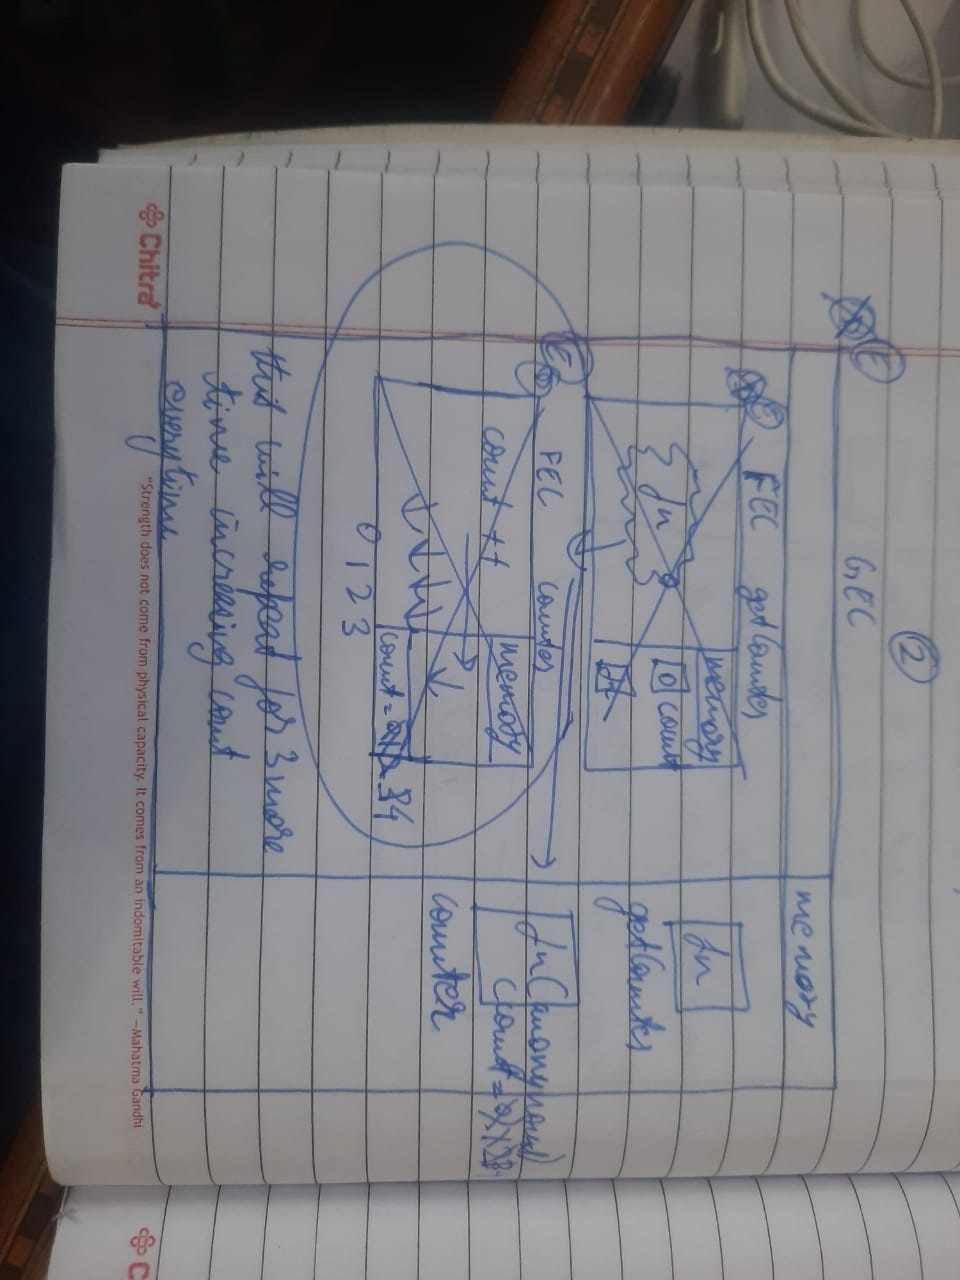 2
E GEC
memory
E FEC getCounter
memory
0 count
{ fn }
fn
getCounter
E FEC counter
memory
count ++
fn (anonymous)
count =
counter
count =
0 1 2 3
this will repeat for 3 more
time increasing count
everytime
Chitra
"Strength does not come from physical capacity. It comes from an indomitable will." –Mahatma Gandhi
C